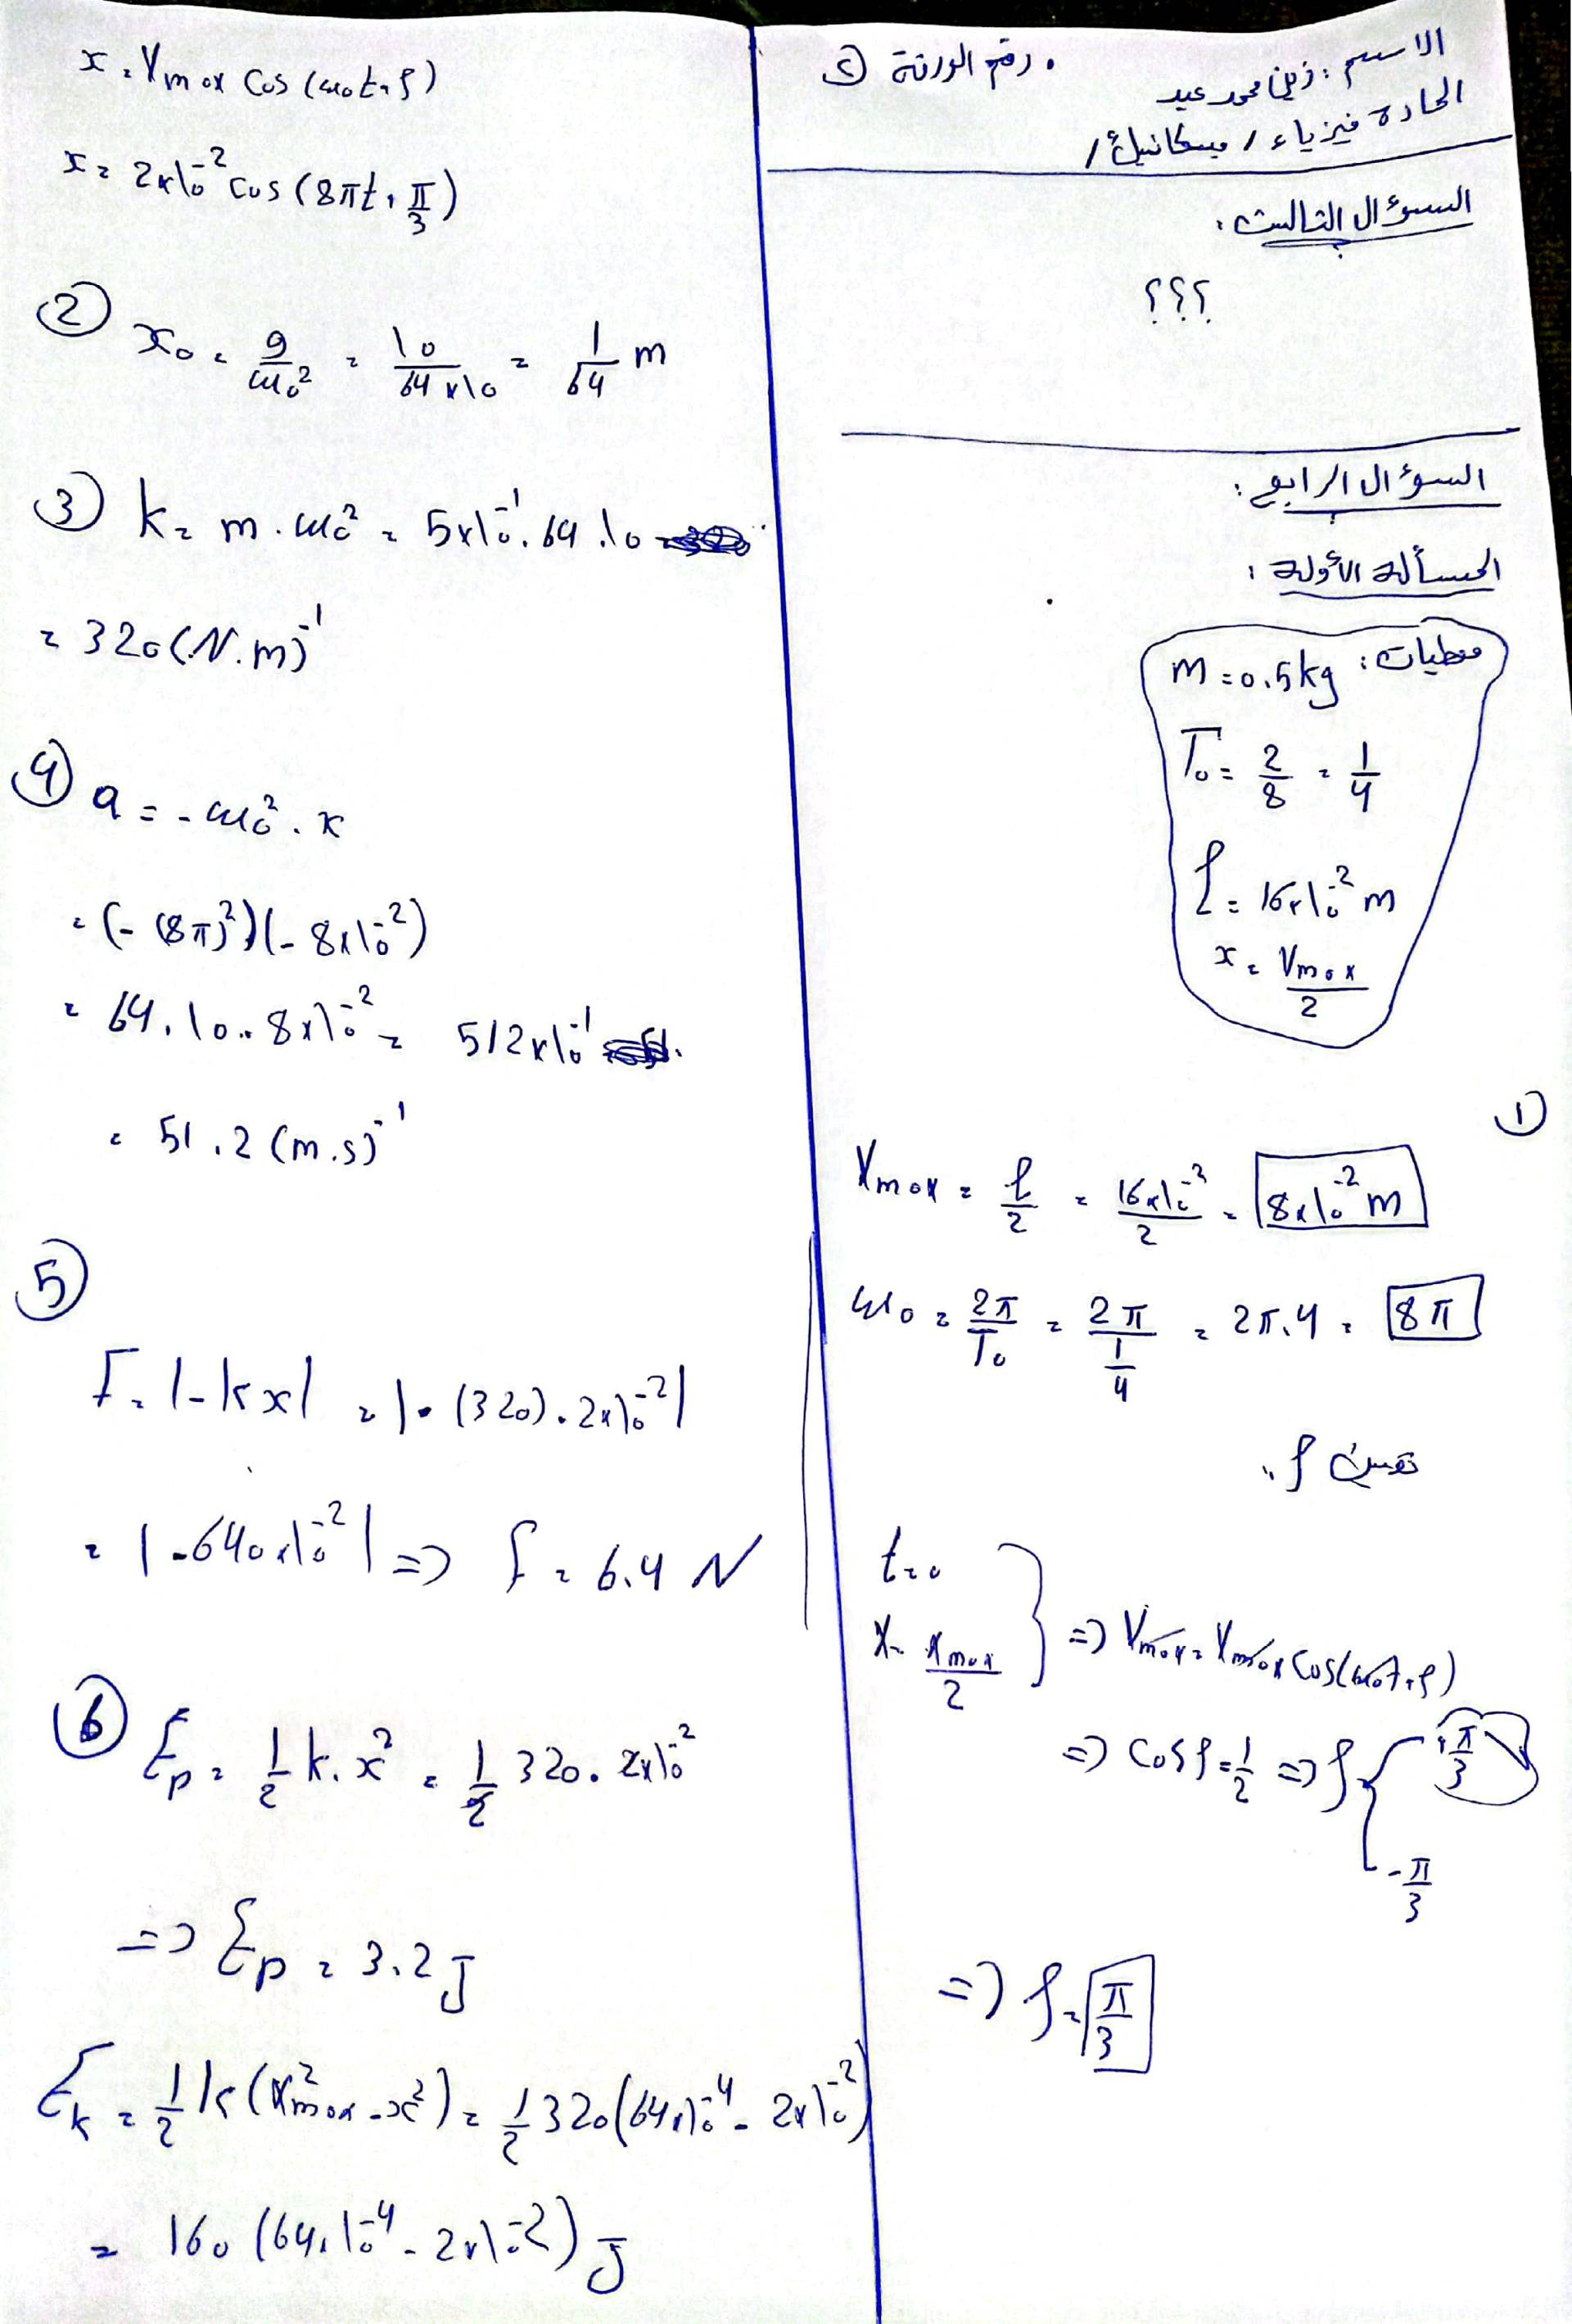 الاسم: زين محمد عيد
رقم الورقة ②
المادة فيزياء / ميكانيك /
السؤال الثالث:
؟؟؟
السؤال الرابع:
المسألة الأولة:
معطيات:
m = 0.5 kg
T₀ = 2/8 = 1/4
ℓ = 16×10⁻² m
x = Xmax/2
①
Xmax = ℓ/2 = 16×10⁻²/2 = 8×10⁻² m
ω₀ = 2π/T₀ = 2π/(1/4) = 2π.4 = 8π
نعين φ:
t=0
X = Xmax/2 } => Xmax = Xmax cos(ω₀t+φ)
=> cos φ = 1/2 => φ { +π/3
-π/3
=> φ = π/3
x = Xmax cos (ω₀t+φ)
x = 2×10⁻² cos (8πt + π/3)
② x₀ = g/ω₀² = 10/(64×10) = 1/64 m
③ k = m . ω₀² = 5×10⁻¹. 64 .10
= 320 (N.m)⁻¹
④ a = - ω₀² . x
= (- (8π)²)(- 8×10⁻²)
= 64 . 10 . 8×10⁻² = 512×10⁻¹
= 51.2 (m.s)⁻¹
⑤
F = |-kx| = |- (320) . 2×10⁻²|
= |-640×10⁻²| => F = 6.4 N
⑥ Ep = 1/2 k. x² = 1/2 320. 2×10⁻²
=> Ep = 3.2 J
Ek = 1/2 k (X²max - x²) = 1/2 320 (64×10⁻⁴ - 2×10⁻²)
= 160 (64.10⁻⁴ - 2×10⁻²) J